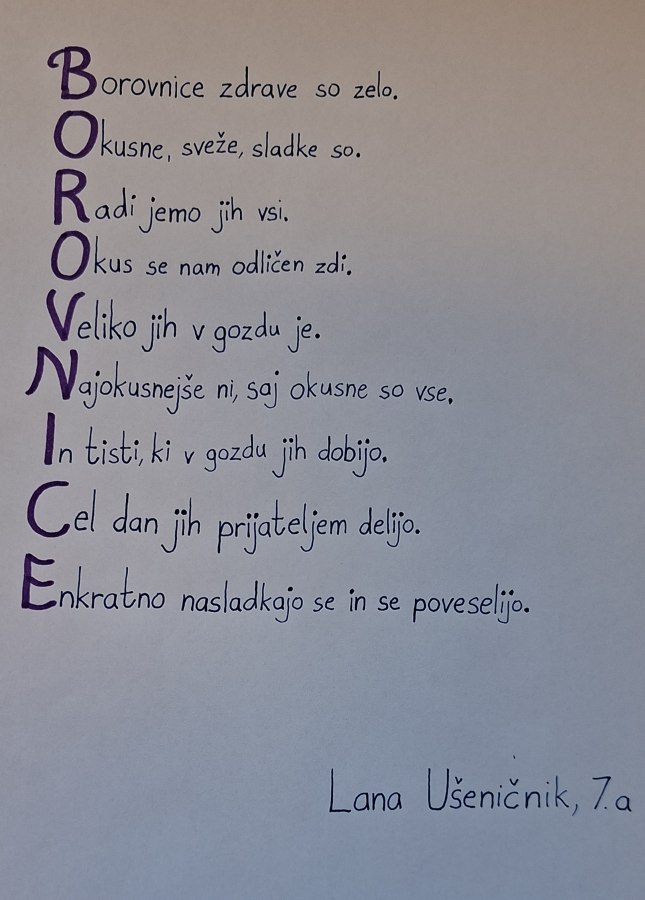 Borovnice zdrave so zelo.
Okusne, sveže, sladke so.
Radi jemo jih vsi.
Okus se nam odličen zdi.
Veliko jih v gozdu je.
Najokusnejše ni, saj okusne so vse.
In tisti, ki v gozdu jih dobijo.
Cel dan jih prijateljem delijo.
Enkratno nasladkajo se in se poveselijo.
Lana Ušeničnik, 7.a